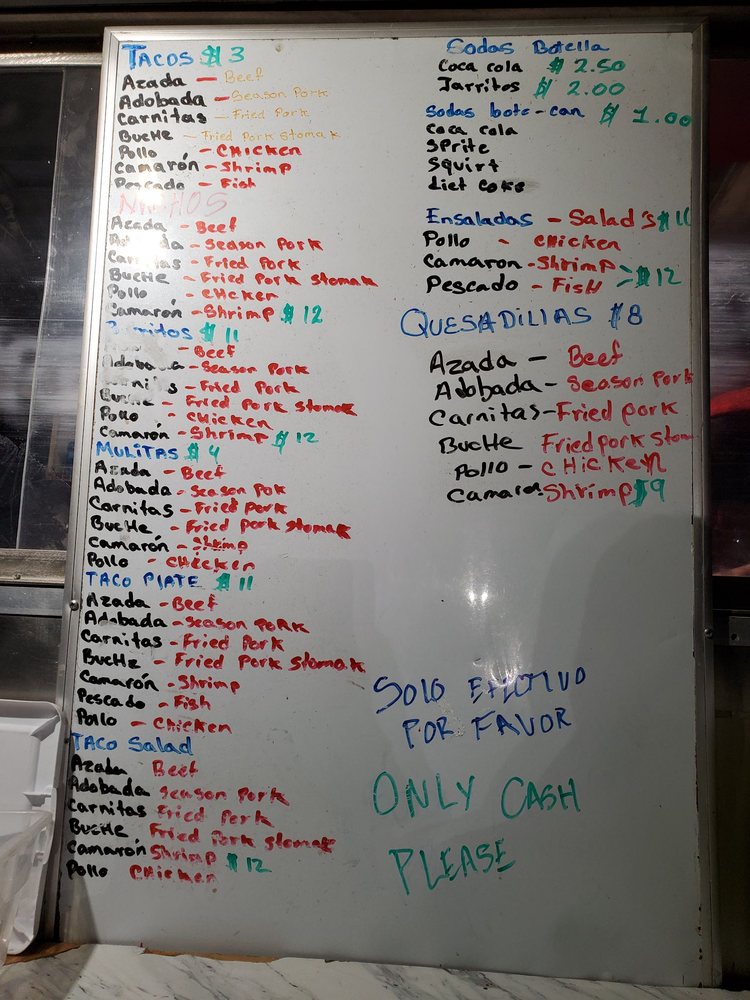 TACOS $3
Azada - Beef
Adobada - Season Pork
Carnitas - Fried Pork
Buche - Fried Pork Stomak
Pollo - Chicken
Camarón - Shrimp
Pescado - Fish
NACHOS
Azada - Beef
Adobada - Season Pork
Carnitas - Fried Pork
Buche - Fried Pork Stomak
Pollo - CHcken
Camarón - Shrimp $12
Burritos $11
- Beef
Adobada - Season Pork
Carnitas - Fried Pork
Buche - Fried Pork Stomak
Pollo - Chicken
Camarón - Shrimp $12
MULITAS $4
Azada - Beef
Adobada - Season Pok
Carnitas - Fried Pork
Buche - Fried Pork Stomak
Camarón - Shrimp
Pollo - Chicken
TACO PlATE $11
Azada - Beef
Adobada - Season Pork
Carnitas - Fried Pork
Buche - Fried Pork Stomak
Camarón - Shrimp
Pescado - Fish
Pollo - Chicken
TACO Salad
Azada Beef
Adobada Season Pork
Carnitas Fried Pork
Buche Fried Pork Stomak
Camarón Shrimp $12
Pollo Chicken
Sodas Botella
Coca cola $2.50
Jarritos $2.00
Sodas bote-can $1.00
Coca cola
Sprite
Squirt
diet coke
Ensaladas - Salad's $11
Pollo - Chicken
Camaron - Shrimp
Pescado - Fish > $12
QUESADILlAS $8
Azada - Beef
Adobada - Season Pork
Carnitas - Fried pork
Buche Fried pork stom
Pollo - Chicken
Camaron Shrimp $9
SOLO EFECTIVO
POR FAVOR
ONLY CASH
PLEASE